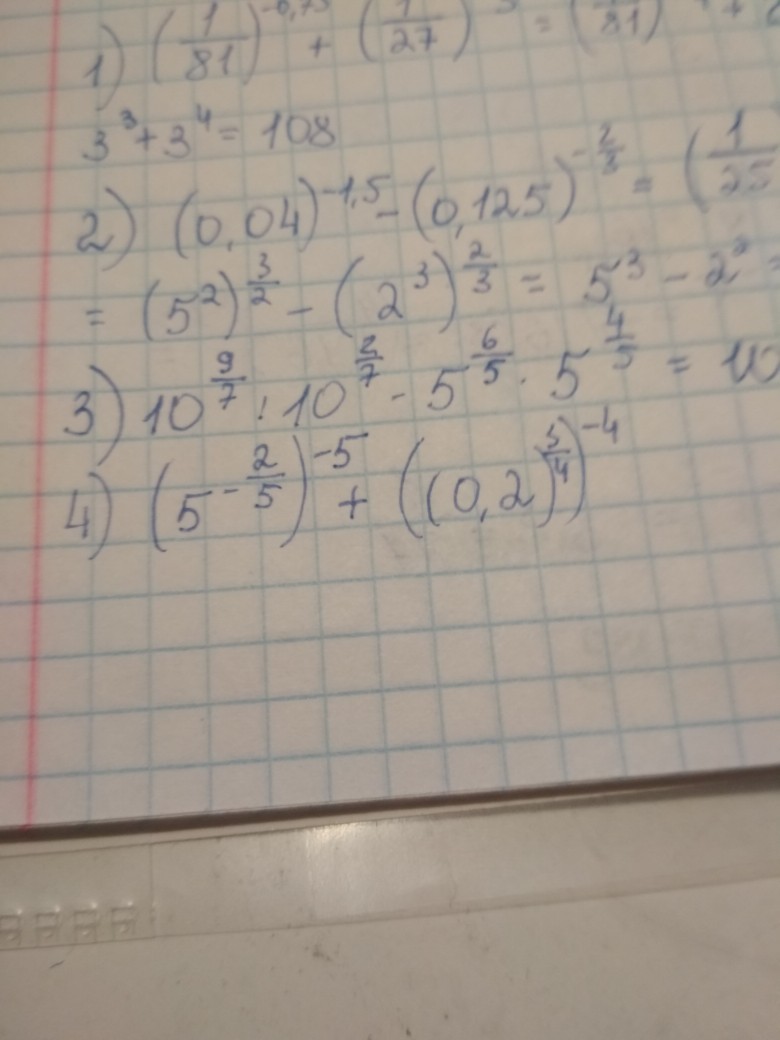 1) (1/81)^-0,75 + (1/27) = (1/81) +
3^3 + 3^4 = 108
2) (0,04)^-1,5 - (0,125)^-2/3 = (1/25
= (5^2)^3/2 - (2^3)^2/3 = 5^3 - 2^2 =
3) 10^9/7 : 10^2/7 - 5^6/5 · 5^4/5 = 10
4) (5^-2/5)^-5 + ((0,2)^3/4)^-4